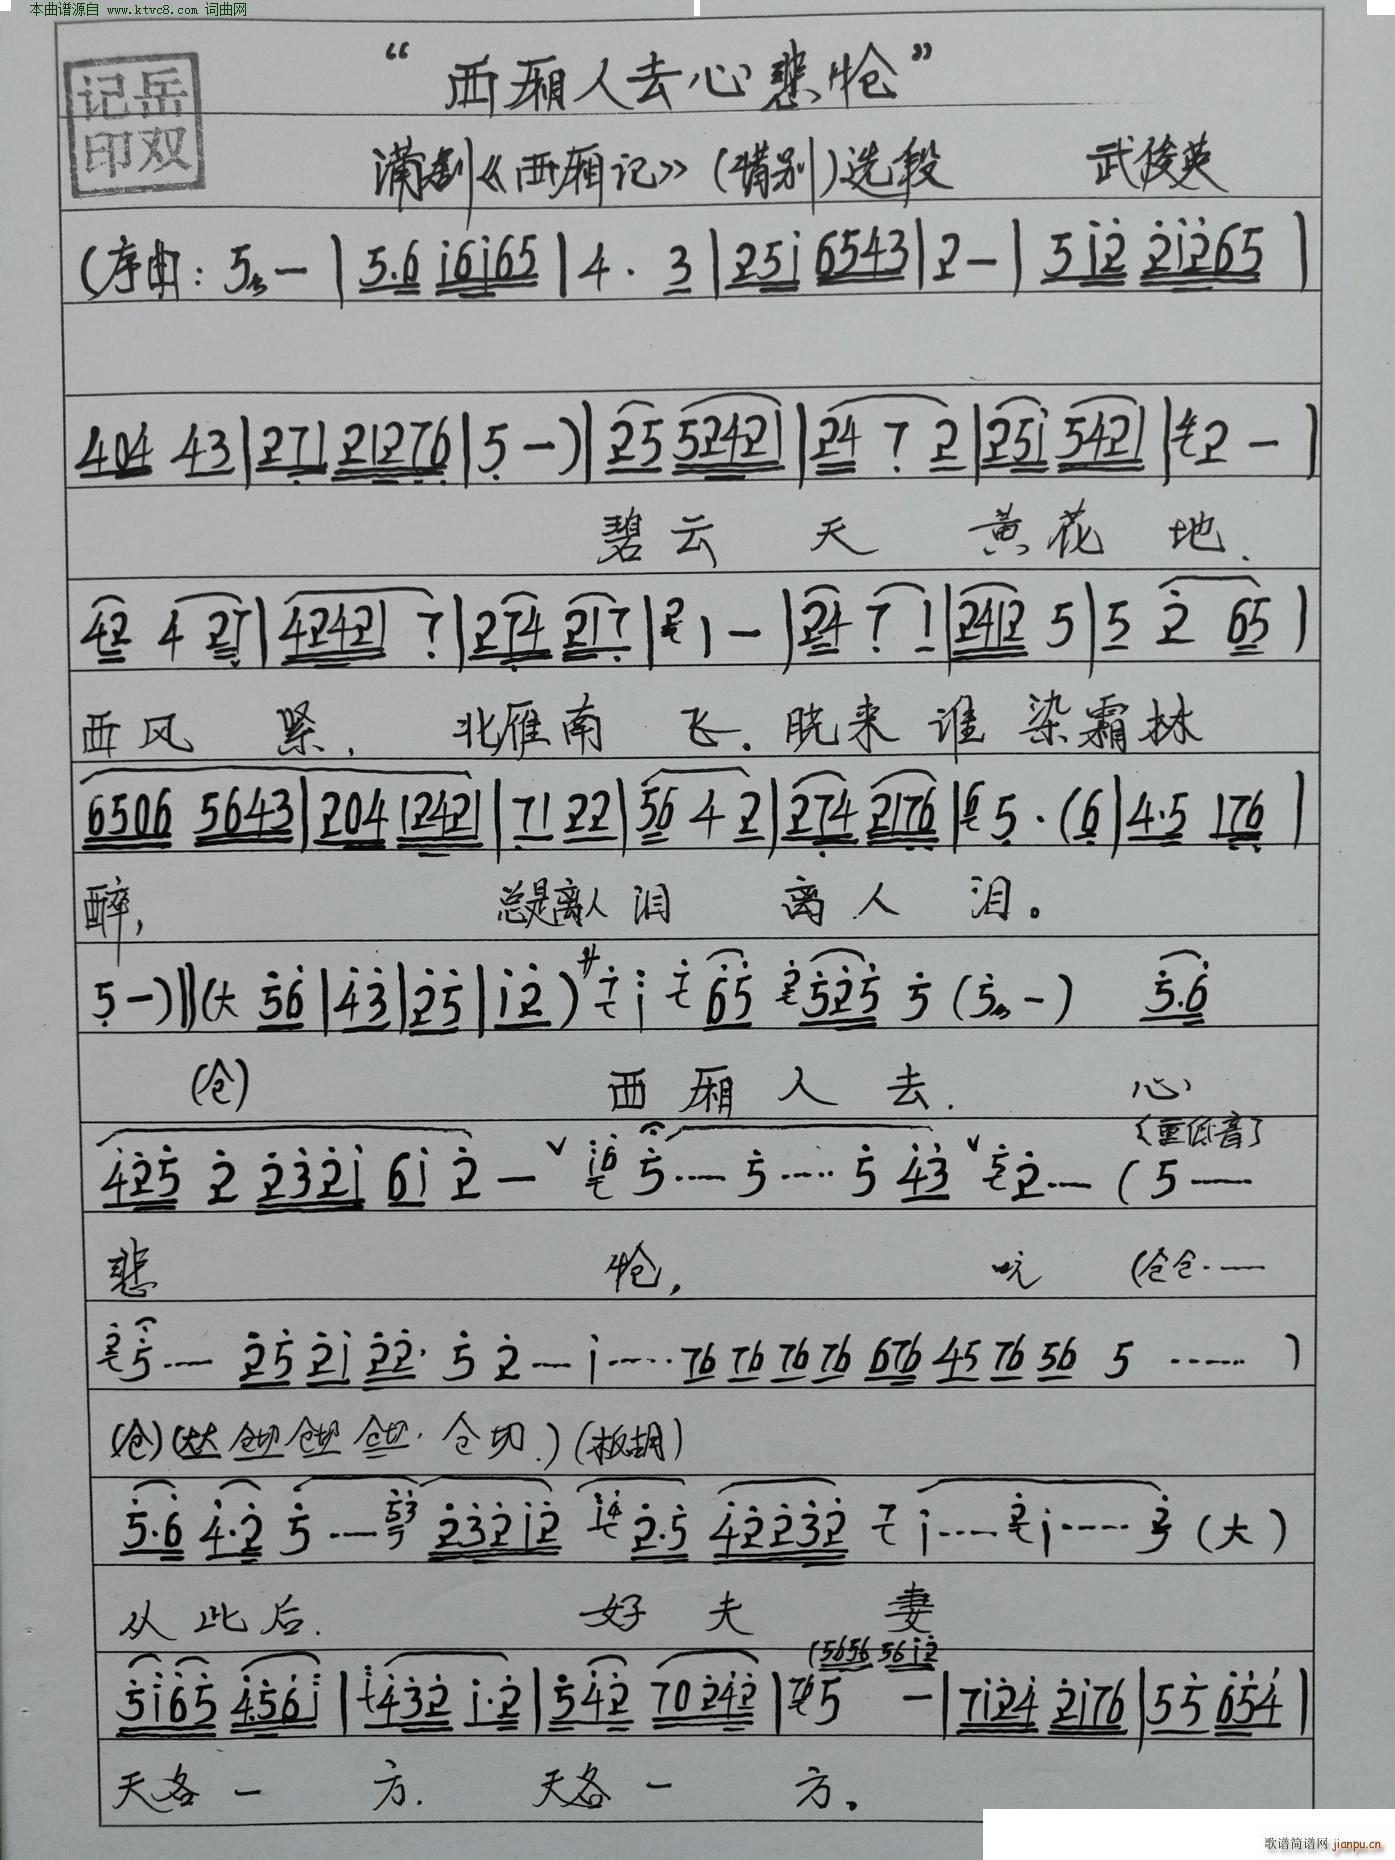 本曲谱源自 www.ktvc8.com 词曲网
记岳
印双
“西厢人去心悲怆”
蒲剧《西厢记》(惜别)选段 武俊英
(序曲: 5 — | 5.6 i6i65 | 4 . 3 | 25i 6543 | 2 — | 5i2 2i265 |
404 43 | 271 21276 | 5 — ) | 25 52421 | 24 7 2 | 251 5421 | 2 — |
碧云 天 黄花 地.
42 4 27 | 42421 7 | 274 217 | 1 — | 24 7 1 | 2412 5 | 5 2 65 |
西风 紧, 北雁南 飞. 晓来 谁 染霜林
6506 5643 | 204 12421 | 71 22 | 56 4 2 | 274 2176 | 5 . (6 | 4.5 176 |
醉, 总是离人泪 离人 泪。
5 — ) ‖ (大 56 | 43 | 25 | i2 ) 廾 7 i 7 65 2 525 5 (5 — ) 5.6
(仓) 西厢人去. 心
(重低音)
425 2 232i 6i 2 — ∨ i6 5 …… 5 …… 5 43 ∨ 5 2 …… ( 5 ……
悲 怆, 吭 (仓仓……
2 5 …… 25 2i 22. 5 2 …… i …… 76 76 76 76 676 45 76 56 5 …… )
(仓) (大大 仓切 仓切 仓切. 仓切.) (板胡)
5.6 4.2 5 …… 53 232i2 i4 2.5 42232 7 i …… 2 i …… 2 (大)
从此后. 好夫 妻
(5656 56i2
5i65 456i | i 432 i.2 | 542 70242 | 76 5 — | 7i24 2i76 | 55 654 |
天各一 方. 天各一 方。
歌谱简谱网 jianpu.cn